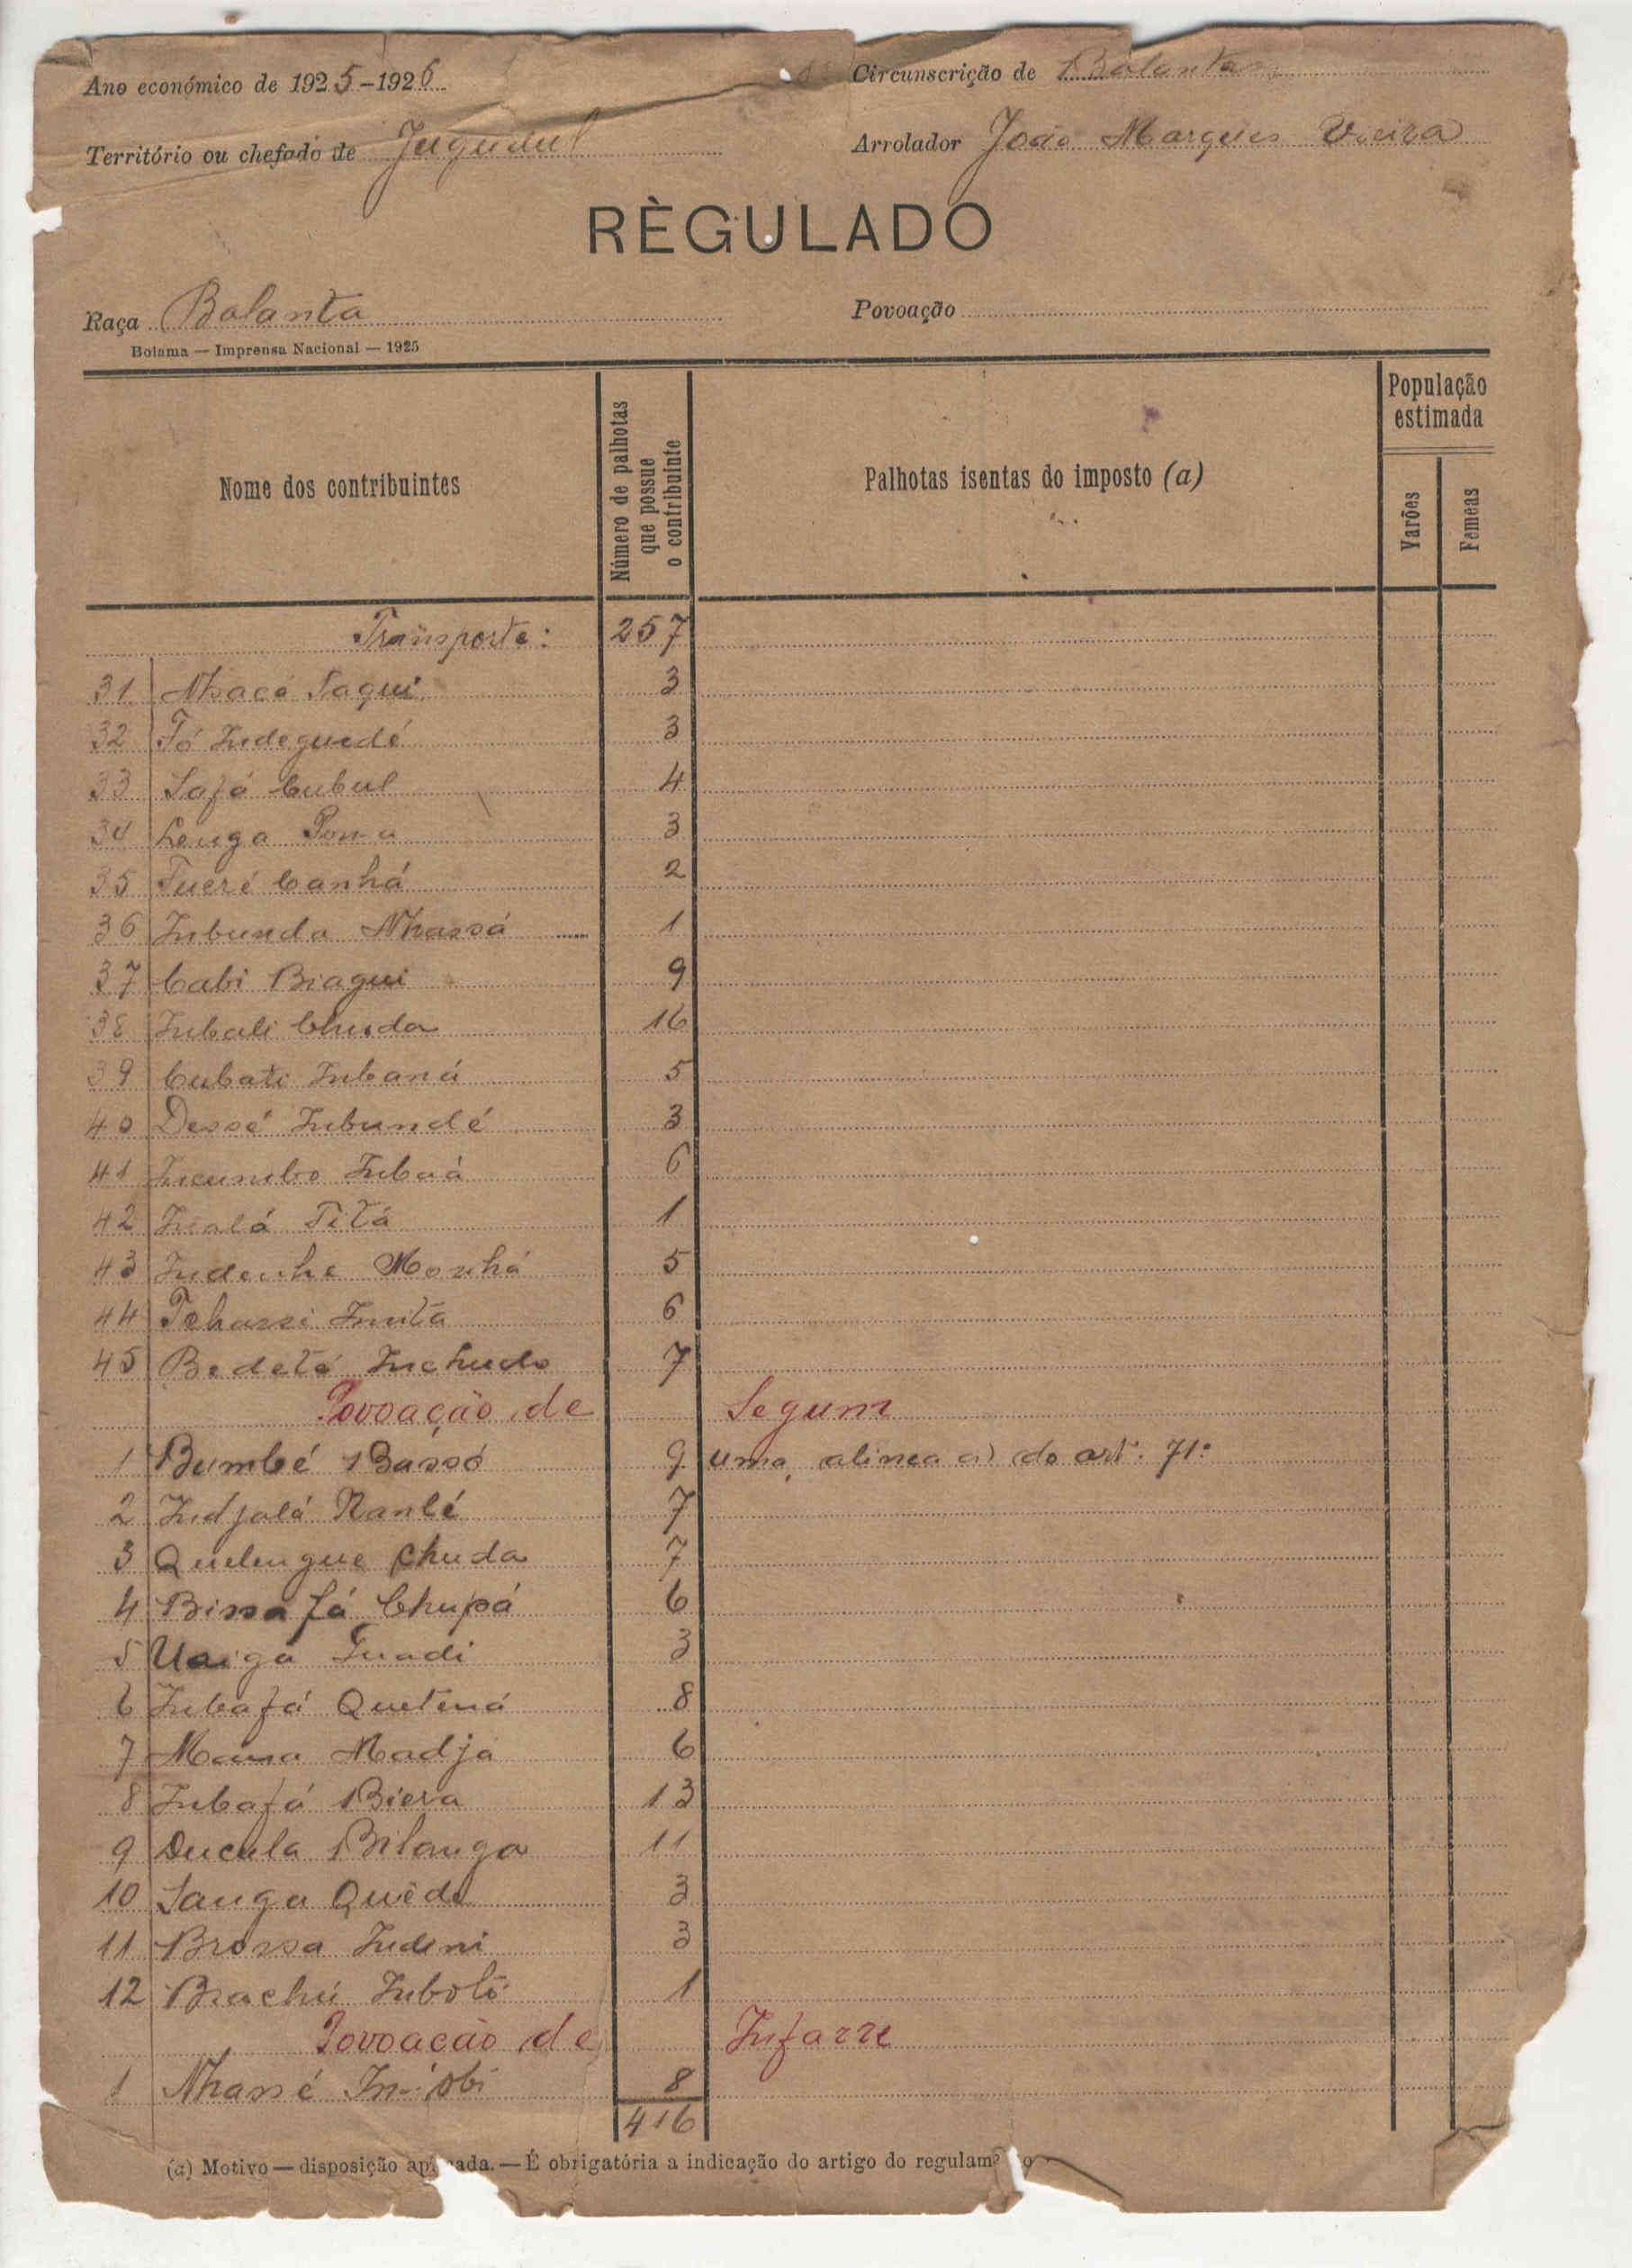 Ano económico de 1925-1926 Circunscrição de Balantas
Território ou chefado de Jugudul Arrolador João Marques Vieira
RÈGULADO
Raça Balanta Povoação
Bolama — Imprensa Nacional — 1925
Nome dos contribuintes
Número de palhotas que possue o contribuinte
Palhotas isentas do imposto (a)
População estimada
Varões
Femeas
Transporte: 257
31 Nhacá Saqui 3
32 Fó Indeguedé 3
33 Safá Cubul 4
34 Lenga 3
35 Fueré Canhá 2
36 Inbunda Nhassá 1
37 Cabi Biagui 9
38 Inbali Chuda 16
39 Cubati Inbaná 5
40 Dessé Inbundé 3
41 Incumbo Inbaá 6
42 Inalá Titá 1
43 Indenhe Monhá 5
44 Tchassi Inuta 6
45 Bedetá Inchuda 7
Povoação de Segum
1 Bumbé Bassó 9 uma, alinea a) do art. 71º
2 Indjalá Nanbé 7
3 Quelengue Chuda 7
4 Bissafá Chupá 6
5 Uaiga Fuadi 3
6 Inbafá Quetená 8
7 Mana Madjá 6
8 Inbafá Biera 13
9 Ducula Bilanga 11
10 Sanga Quêde 3
11 Brossa Indeni 3
12 Biachú Inboló 1
Povoação de Infarre
1 Nhassé 8
416
(a) Motivo — disposição ap ada. — É obrigatória a indicação do artigo do regulam o